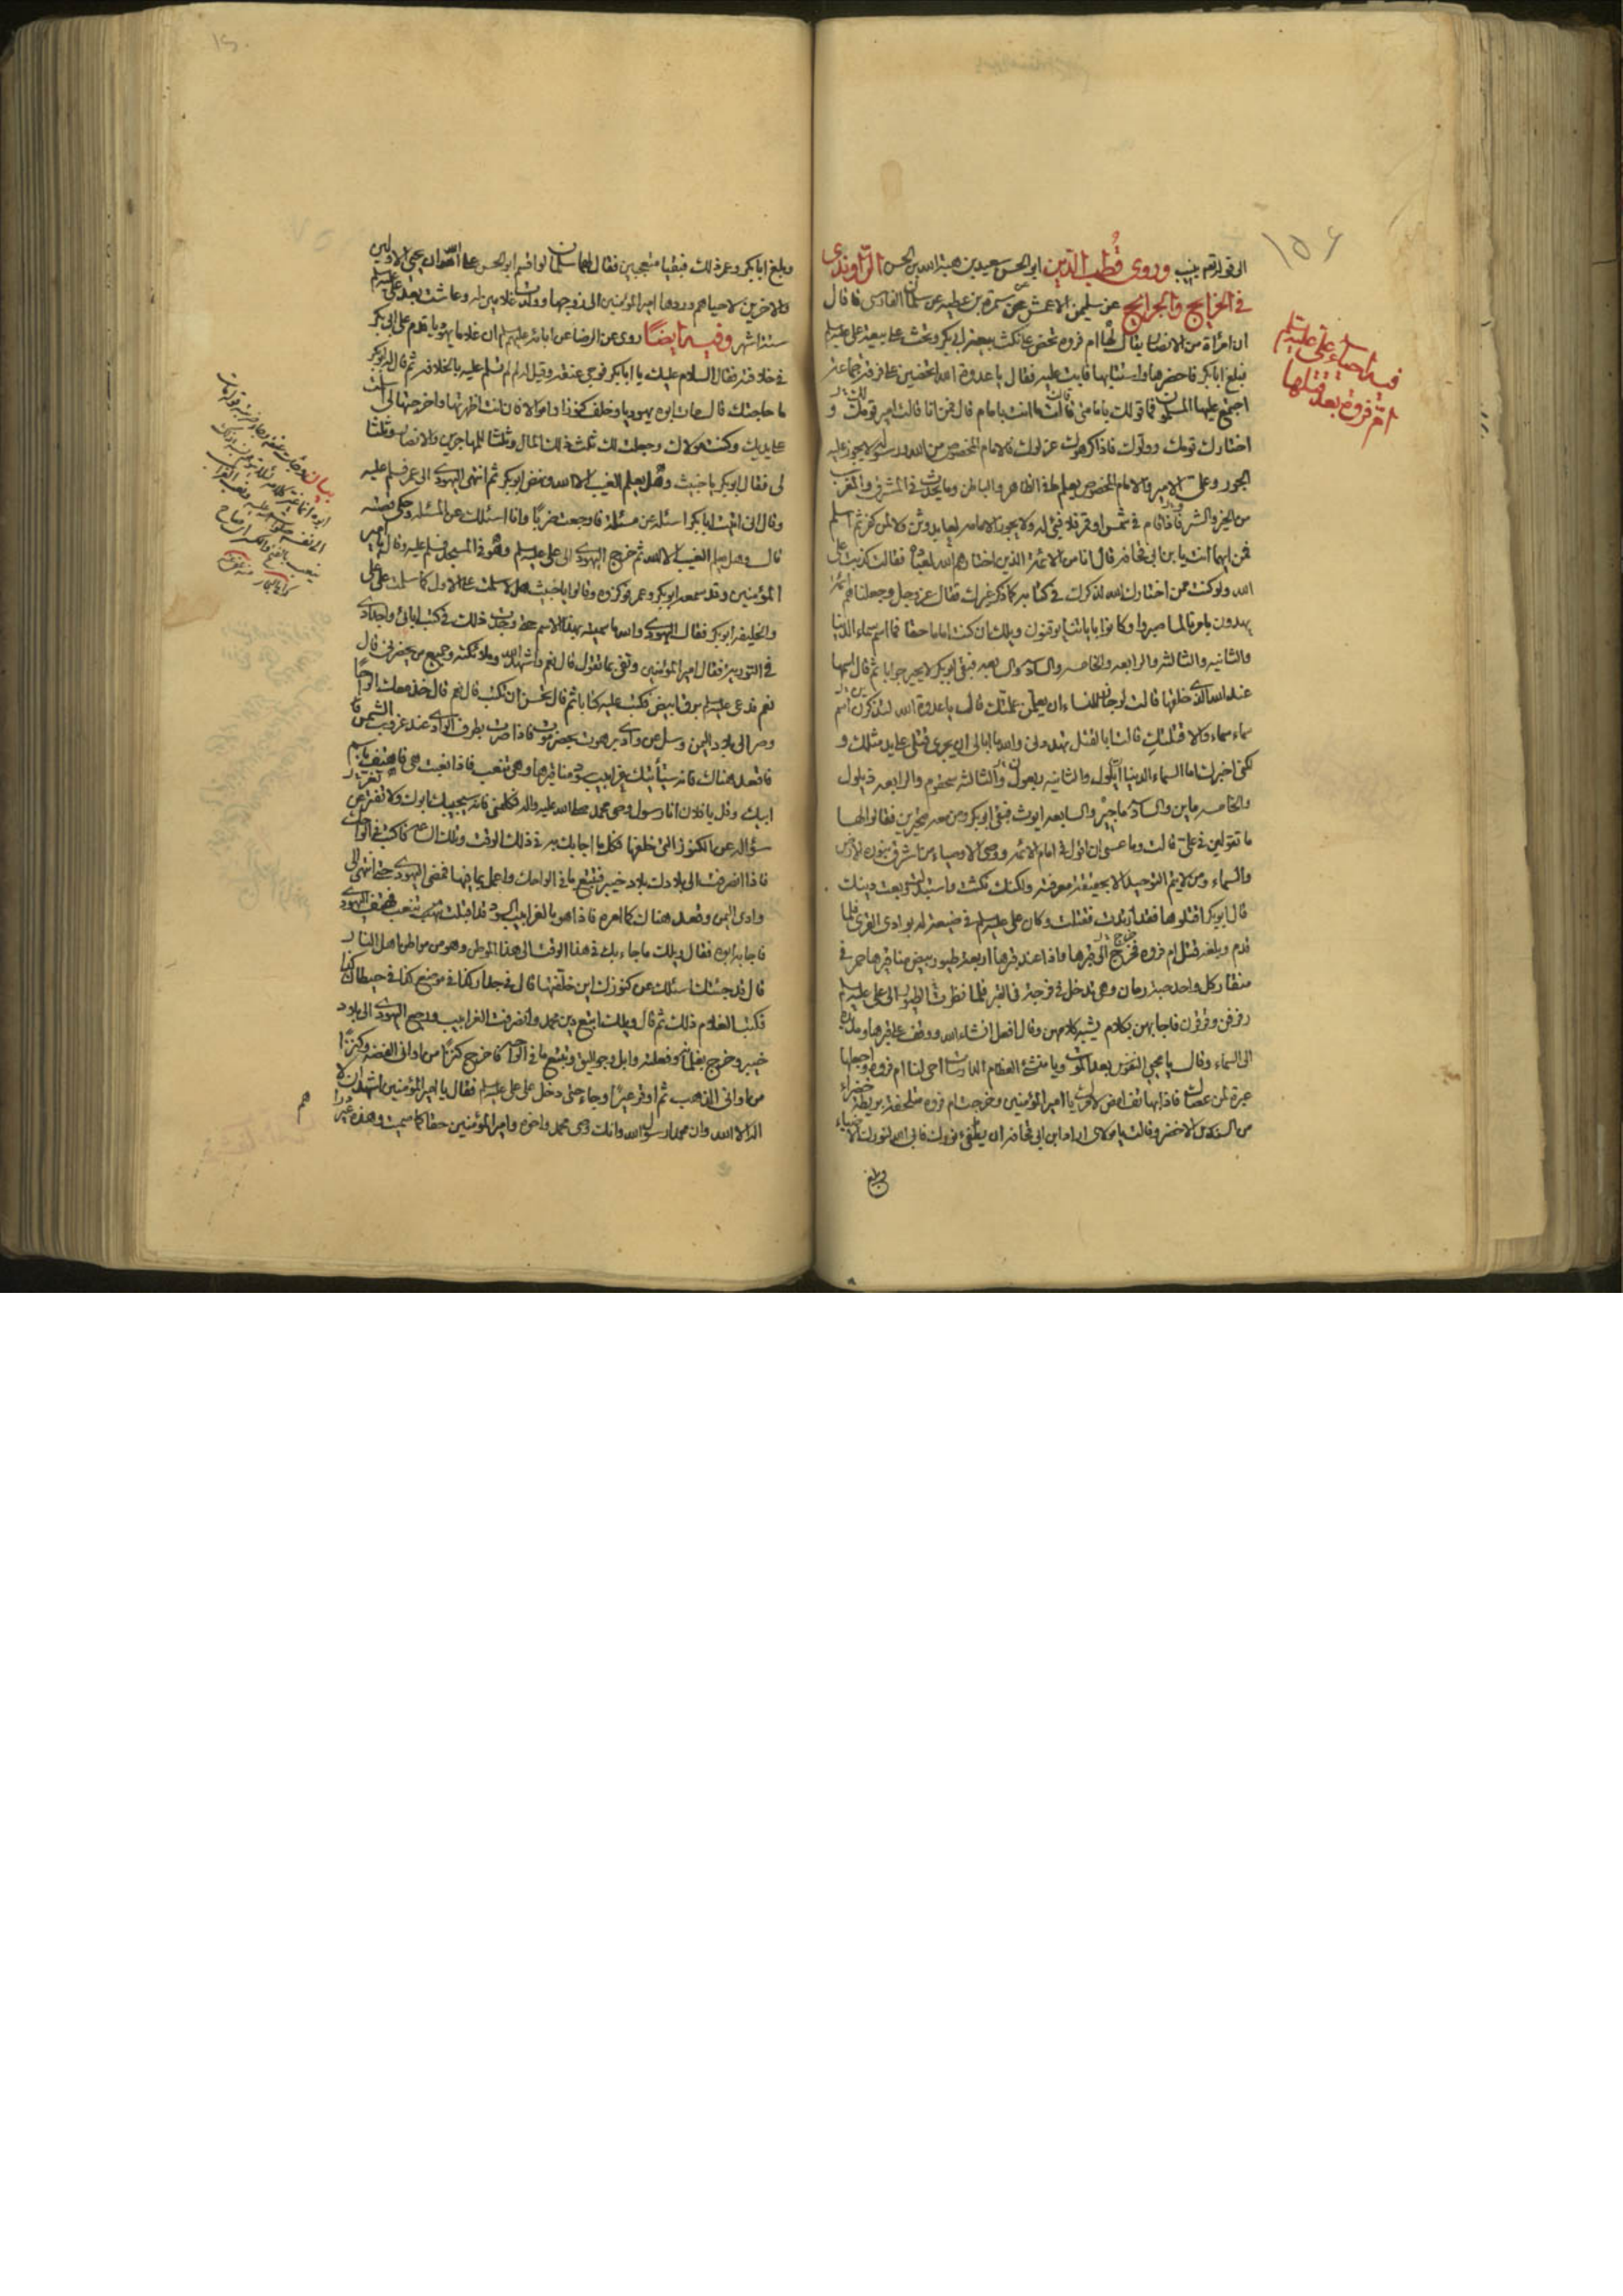 ١٥٦
الى قوله لم يغب وروى قطب الدين ابو الحسن سعيد بن هبة الله بن الحسن الراوندى
فى الخرايج والجرايح عن سليمن الاعمش عن سمرة بن عطيه عن سلمان الفارسى قال
ان امرأة من الانصار يقال لها ام فروه تحض على نكث بيعة ابى بكر وتحث على بيعة على عليه السلم
فبلغ ابا بكر فاحضرها واستتابها فابت عليه فقال يا عدوة الله اتحضين على فرقة جماعة
اجتمع عليها المسلمون فما قولك بامامتى قالت ما انت بامام قال فمن انا قالت امير قومك و
اختارك قومك وولوك فاذا كرهوك عزلوك فالامام المخصوص من الله ورسوله لا يجوز عليه
الجور وعلى الامير والامام المخصوص يعلم ما فى الظاهر والباطن وما يحدث فى المشرق والمغرب
من الخير والشر فاذا قام فى شمس او قمر فلا فئ له ولا يجوز الامامه لعابد وثن ولا لمن كفر ثم اسلم
فمن ايهما انت يا بن ابى قحافه قال انا من الائمة الذين اختارهم الله لعباده فقالت كذبت على
الله ولو كنت ممن اختارك الله لذكرك فى كتابه كما ذكر غيرك فقال عز وجل وجعلنا منهم ائمة
يهدون بامرنا لما صبروا وكانوا باياتنا يوقنون ويلك ان كنت اماما حقا فما اسم سماء الدنيا
والثانيه والثالثه والرابعه والخامسه والسادسه والسابعه فبقى ابو بكر لا يحير جوابا ثم قال اسمها
عند الله الذى خلقها قالت لو جاز للنساء ان يعلمن علمتك فقال يا عدوة الله لتذكرن اسم
سماء سماء والا قتلتك قالت ابالقتل تهددنى والله ما ابالى ان يجرى قتلى على يد مثلك و
لكنى اخبرك اما السماء الدنيا ايلول والثانيه ربعول والثالثه سحقوم والرابعه ذيلول
والخامسه ماين والسادسه ماجير والسابعه ايوث فبقى ابو بكر ومن معه متحيرين فقالوا لها
ما تقولين فى على قالت وما عسى ان اقول فى امام الائمه ووصى الاوصياء من اشرق بنوره الارض
والسماء ومن لا يتم التوحيد الا بحقيقة معرفته ولكنك نكثت واستبدلت وبعت دينك
قال ابو بكر اقتلوها فقد ارتدت فقتلت وكان على عليه السلم فى ضيعة له بوادى القرى فلما
قدم وبلغه قتل ام فروه فخرج الى قبرها واذا عند قبرها اربعة طيور بيض مناقيرها حمر فى
منقار كل واحد حبة رمان وهى تدخل فى فرجة فى القبر فلما نظرت الطيور الى على عليه السلم
رفرفن وقرقرن فاجابهن بكلام يشبه كلامهن وقال افعل انشاء الله ووقف على قبرها ومد يده
الى السماء وقال يا محيى النفوس بعد الموت ويا منشئ العظام الدارسات احى لنا ام فروه واجعلها
عبرة لمن عصاك فاذا بهاتف امض لامرك يا امير المؤمنين وخرجت ام فروه متلحفة بريطة خضراء
من السندس الاخضر وقالت يا مولاى اراد ابن ابى قحافه ان يطفئ نورك فابى الله لنورك الا ضياء
وبلغ
فيه احياء على عليه السلم
ام فروه بعد قتلها
وبلغ ابا بكر وعمر ذلك فبقيا متعجبين فقال لهما سلمان لو اقسم ابو الحسن على الله ان يحيى الاولين
والاخرين لاحياهم وردها امير المؤمنين الى زوجها وولدت غلامين له وعاشت بعد على عليه السلم
ستة اشهر وفيه ايضا روى عن الرضا عن ابائه عليهم السلم ان غلاما يهوديا قدم على ابى بكر
فى خلافته فقال السلام عليك يا ابا بكر فوجى عنقه وقيل له لم لم تسلم عليه بالخلافه ثم قال له ابو بكر
ما حاجتك قال مات ابوه يهوديا وخلف كنوزا واموالا فان انت اظهرتها واخرجتها لى اسلمت
على يديك وكنت مولاك وجعلت لك ثلث ذلك المال وثلثا للمهاجرين والانصار وثلثا
لى فقال ابو بكر يا خبيث وهل يعلم الغيب الا الله ونهض ابو بكر ثم انتهى اليهودى الى عمر فسلم عليه
وقال انى اتيت ابا بكر اسئله عن مسئلة فاوجعت ضربا وانا اسئلك عن المسئله وحكى قصته
قال وهل يعلم الغيب الا الله ثم خرج اليهودى الى على عليه السلم وهو فى المسجد فسلم عليه وقال يا امير
المؤمنين وقد سمعه ابو بكر وعمر فوكزوه وقالوا يا خبيث هلا سلمت على الاول كما سلمت على على
والخليفه ابو بكر فقال اليهودى والله ما سميته بهذا الاسم حتى وجدت ذلك فى كتب ابائى واجدادى
فى التوريه فقال امير المؤمنين وتفى بما تقول قال نعم واشهد الله وملائكته وجميع من يحضرنى قال
نعم فدعى عليه السلم برق ابيض فكتب عليه كتابا ثم قال تحسن ان تكتب قال نعم قال خذ معك الواحا
وصر الى بلاد اليمن وسل عن وادى برهوت بحضرموت فاذا صرت بطرف الوادى عند غروب الشمس
فاقعد هناك فانه سيأتيك غرابيب سود مناقيرها وهى تنعب فاذا نعبت هى فاهتف باسم
ابيك وقل يا فلان انا رسول وصى محمد صلى الله عليه واله فكلمنى فانه سيجيبك ابوك ولا تفتر عن
سؤاله عن الكنوز التى خلفها فكل ما اجابك به فى ذلك الوقت وتلك الساعه فاكتبه فى الواحك
فاذا انصرفت الى بلادك بلاد خيبر فتتبع ما فى الواحك واعمل بما فيها فمضى اليهودى حتى انتهى الى
وادى اليمن وقعد هناك كما امره فاذا هو بالغرابيب السود قد اقبلت تنعب فهتف اليهودى
فاجابه ابوه فقال ويلك ما جاء بك فى هذا الوقت الى هذا الموطن وهو من مواطن اهل النار
قال قد جئتك اسئلك عن كنوزك اين خلفتها قال فى جدار كذا فى موضع كذا فى حيطان كذا
فكتب الغلام ذلك ثم قال ويلك اتبع دين محمد وانصرفت الغرابيب ورجع اليهودى الى بلاد
خيبر وخرج بغلمانه وفعلته وابل وجواليق وتتبع ما فى الواحه فاخرج كنزا من اوانى الفضه وكنزا
من اوانى الذهب ثم اوقر عيرا وجاء حتى دخل على على عليه السلم فقال يا امير المؤمنين اشهد ان لا
اله الا الله وان محمدا رسول الله وانك وصى محمد واخوه وامير المؤمنين حقا كما سميت وهذه عير
بيان